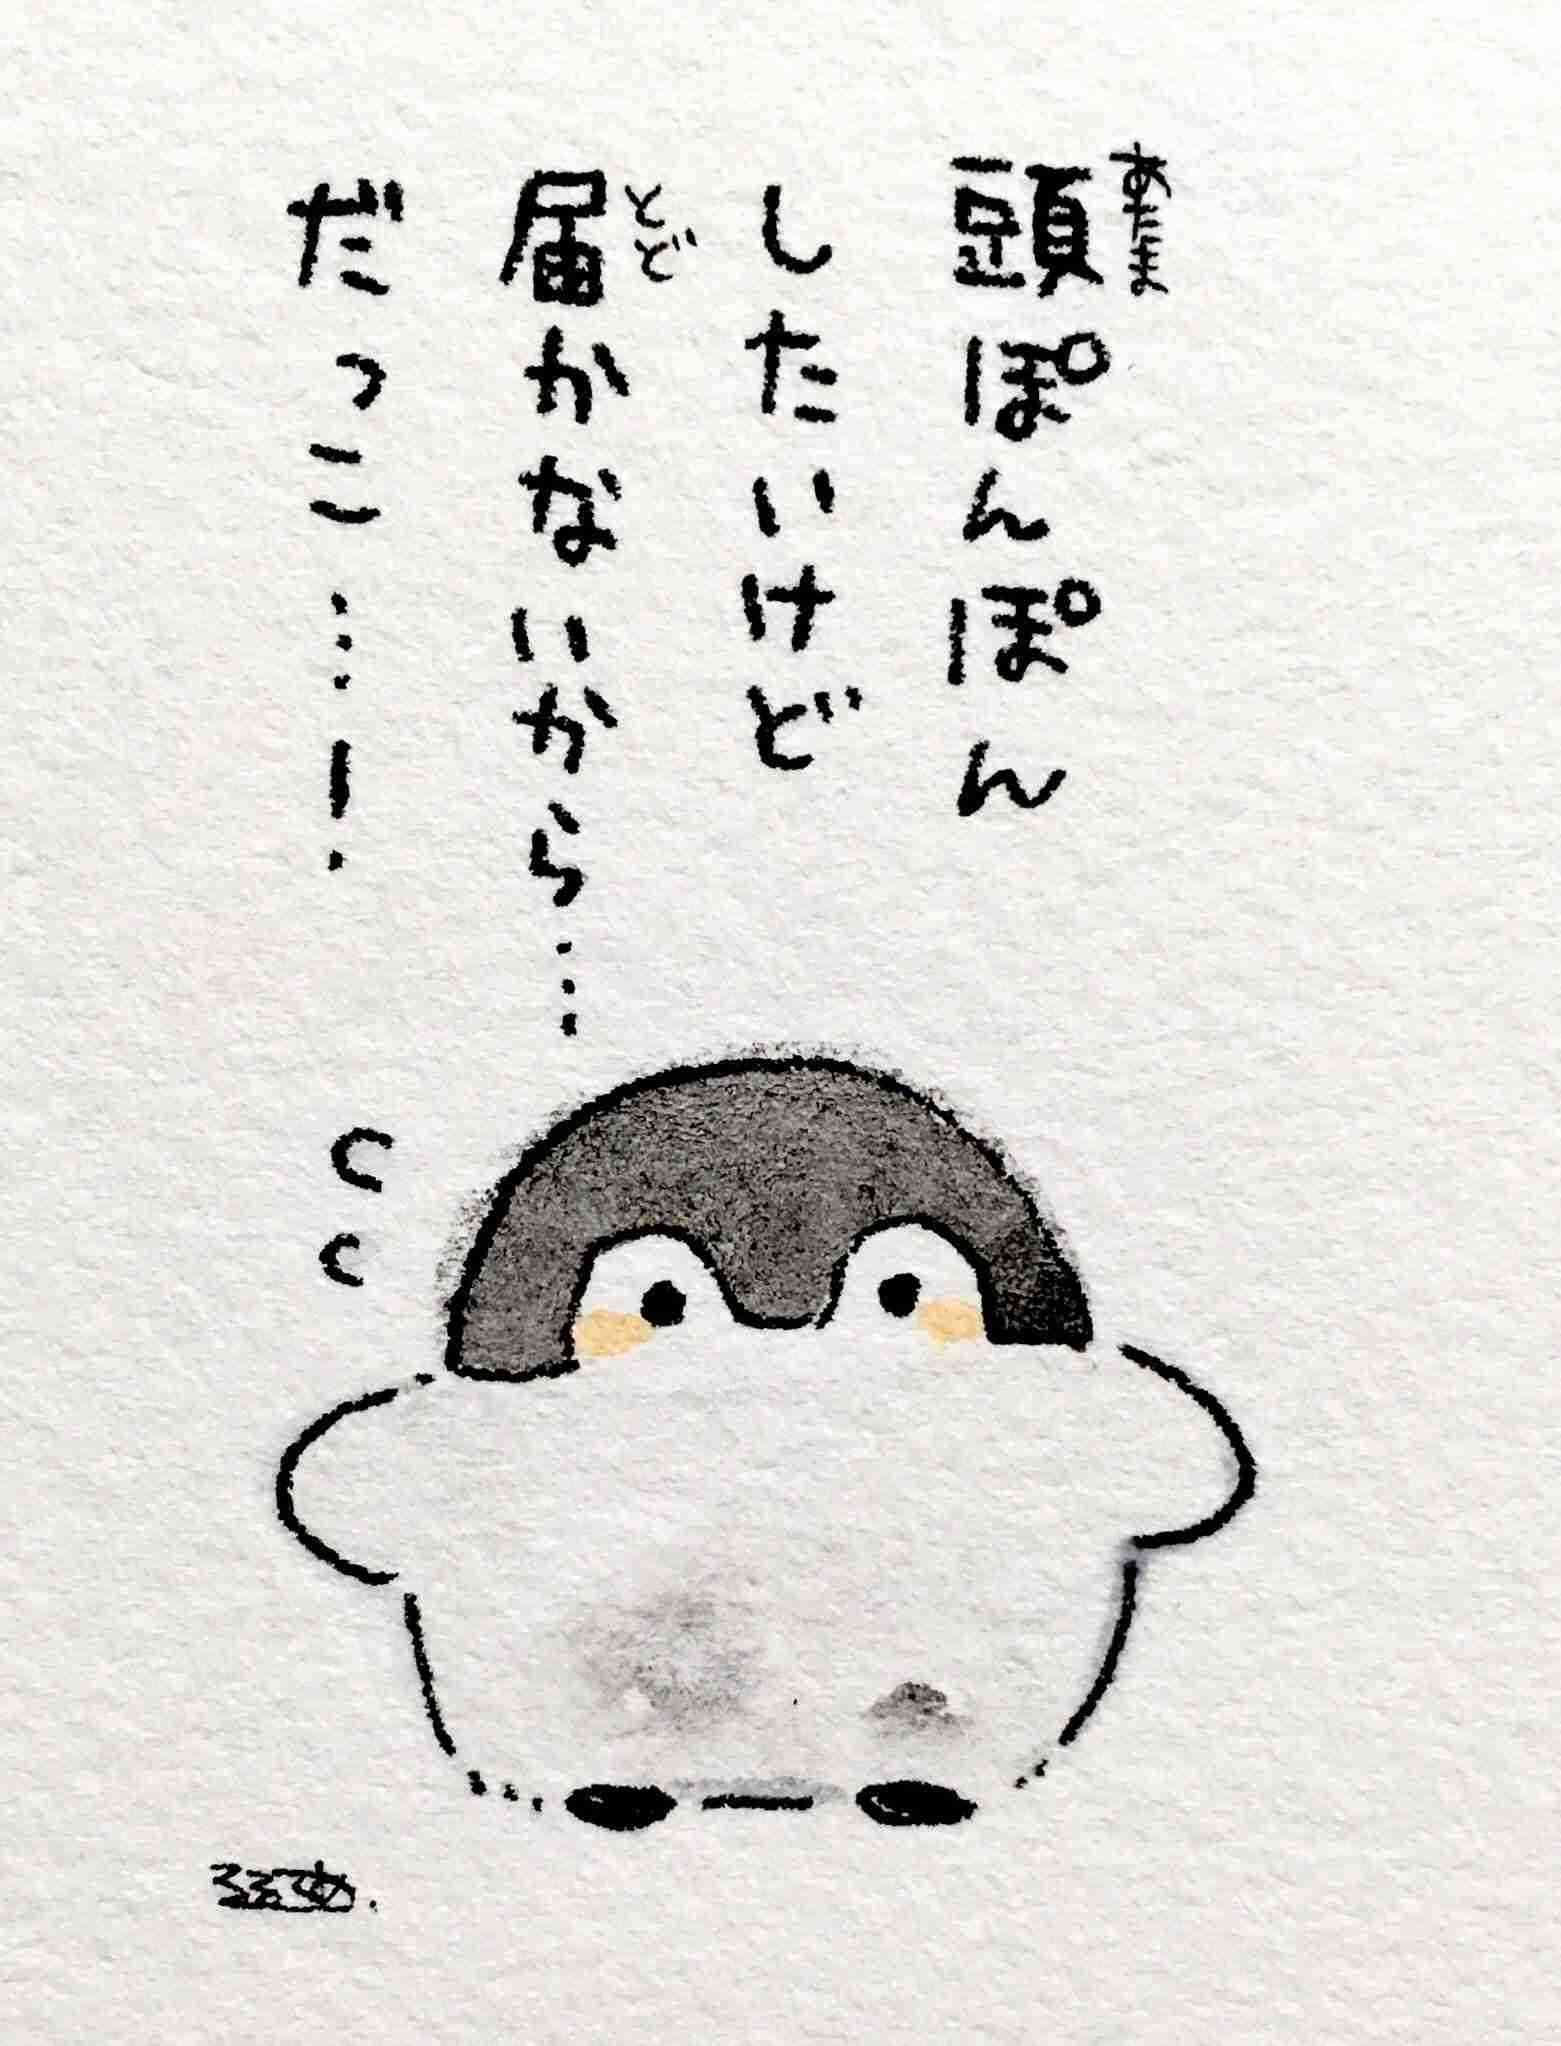 頭ぽんぽん
あたま
したいけど
届かないから…
とど
だっこ…！